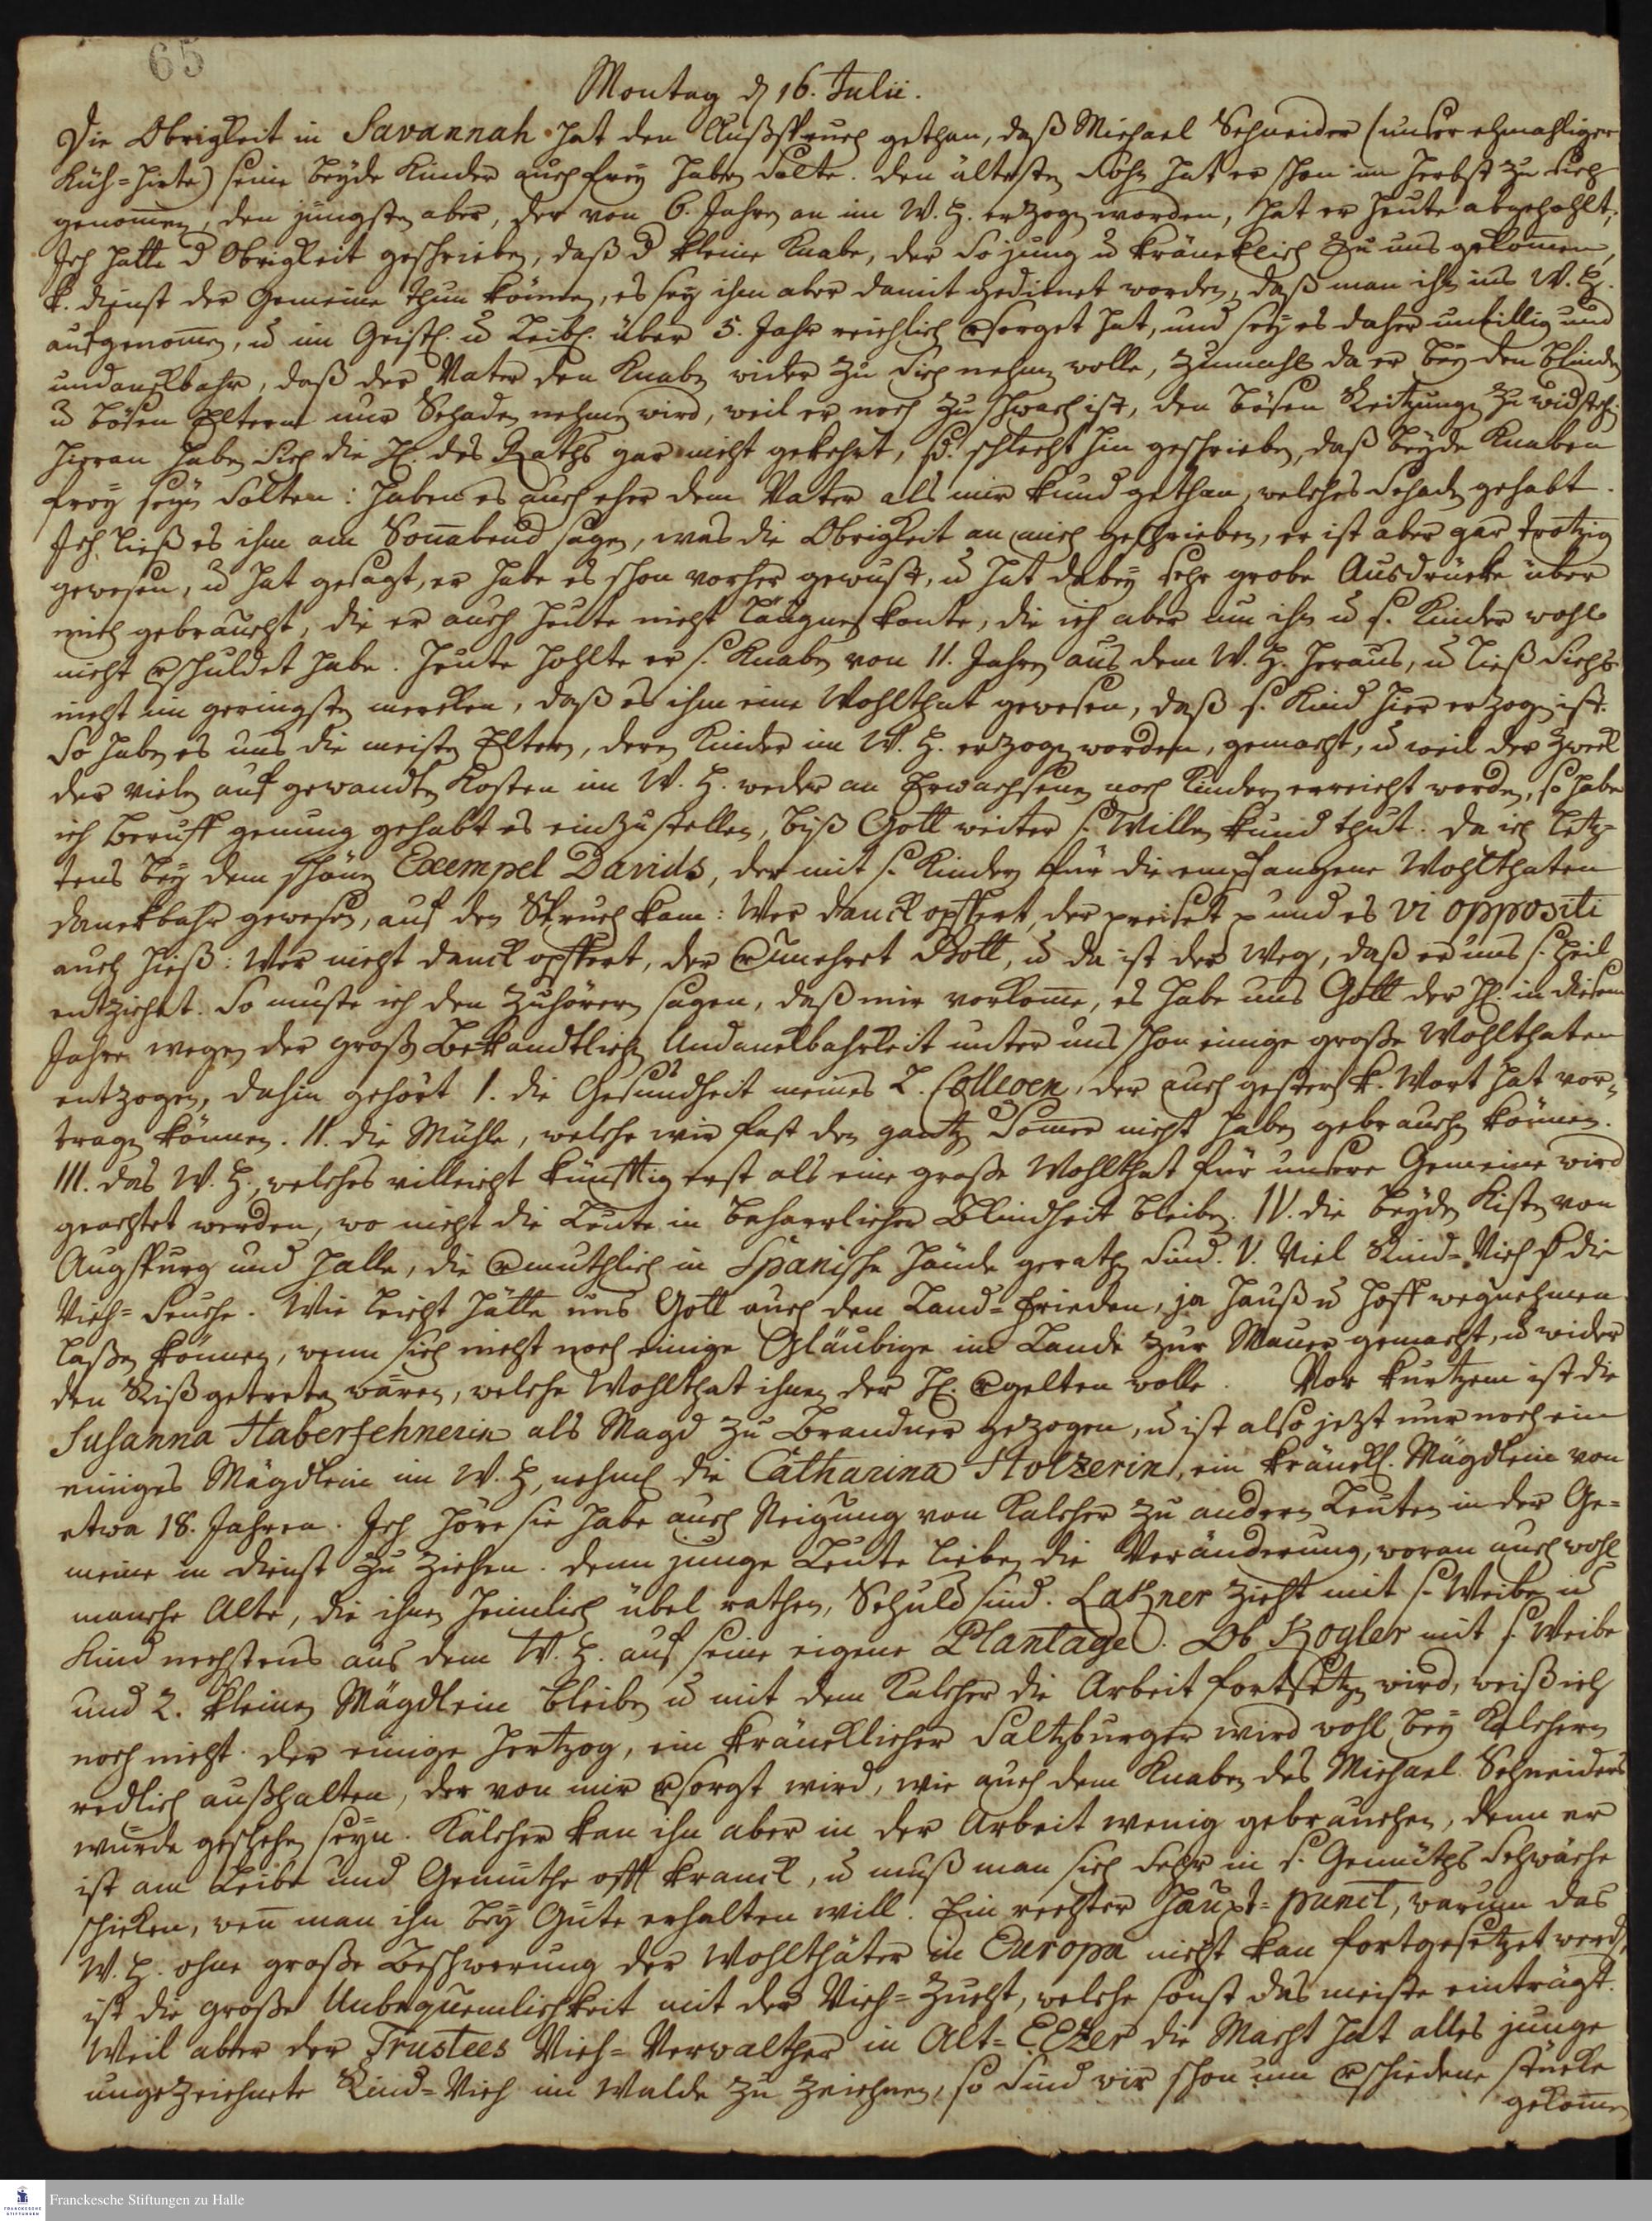 65
Montag d 16. Julii.
Die Obrigkeit in Savannah hat den Außspruch gethan, daß Michael Schneider (unser ehmahliger
Küh=Hirte) seine beyde Kinder auch frey haben solte. den ältesten Sohn hat er schon im Herbst zu sich
genommen, den jüngsten aber, der von 6. Jahren an im W. H. erzogen worden, hat er heute abgehohlt;
Ich hatte d Obrigkeit geschrieben, daß d kleine Knabe, der so jung u kräncklich zu uns gekommen,
k. dienst der Gemeine thun können, es sey ihm aber damit gedienet worden, daß man ihn ins W. H.
aufgenommen, u im Geistl. u Leibl. über 5. Jahr reichlich versorget hat, und sey es daher unbillig und
undanckbahr, daß der Vater den Knaben wider zu sich nehmen wolle, zumahl da er bey den blinden
u bösen Eltern nur Schaden nehmen wird, weil er noch zu schwach ist, den bösen Reitzungen zu widstehen
hieran haben sich die H. des Raths gar nicht gekehrt, sd. schlecht hin geschrieben, daß beyde Knaben
frey seyn solten: haben es auch eher dem Vater als mir kund gethan, welches Schaden gehabt.
Ich ließ es ihm am Sonnabend sagen, was die Obrigkeit an mich geschrieben, er ist aber gar trotzig
gewesen, u hat gesagt, er habe es schon vorher gewust, u hat dabey sehr grobe Ausdrücke über
mich gebraucht, die er auch heute nicht läugnen konte, die ich aber um ihn u s. Kinder wohl
nicht verschuldet habe. Heute hohlte er s. Knaben von 11. Jahren aus dem W. H. heraus, u ließ sichs
nicht im geringsten mercken, daß es ihm eine Wohlthat gewesen, daß s. Kind hier erzogen ist.
So haben es uns die meisten Eltern, deren Kinder im W. H. erzogen worden, gemacht, u weil der Zweck
der vielen auf gewandten Kosten im W. H. weder an Erwachsenen noch Kindern erreicht worden, so habe
ich Beruff genung gehabt es einzustellen, biß Gott weiter s. Willen kund thut. da ich letz=
tens bey dem schönen Exempel Davids, der mit s. Kindern für die empfangene Wohlthaten
danckbahr gewesen, auf den Spruch kam: Wer danck opffert, der preiset p und es vi oppositi
auch hieß: Wer nicht danck opffert, der verunehret Gott, u da ist der Weg, daß er uns s. Heil
entziehet. So muste ich den Zuhörern sagen, daß mir vorkomme, es habe uns Gott der H. in diesem
Jahre wegen der großen bekandtlichen Undanckbahrkeit unter uns schon einige große Wohlthaten
entzogen, dahin gehört I. die Gesundheit meines L. Collegen, der auch gestern k. Wort hat vor=
tragen können. II. die Mühle, welche wir fast den gantzen Sommer nicht haben gebrauchen können.
III. das W. H., welches villeicht künfftig erst als eine große Wohlthat für unsere Gemeine wird
geachtet werden, wo nicht die Leute in beharrlicher Blindheit bleiben. IV. die beyden Kisten von
Augspurg und Halle, die vermuthlich in Spanische Hände gerathen sind. V. Viel Rind=Vieh p die
Vieh=Seuche. Wie leicht hätte uns Gott auch den Land=Frieden, ja Hauß u Hoff wegnehmen
laßen können, wenn sich nicht noch einige Gläubige im Lande zur Mauer gemacht, u wider
den Riß getreten wären, welche Wohlthat ihnen der H. vergelten wolle. Vor kurtzem ist die
Susanna Haberfehnerin als Magd zu Brandner gezogen, u ist also jezt nur noch ein
einiges Mägdlein im W. H, nehml die Catharina Holzerin, ein kränckl. Mägdlein von
etwa 18. Jahren. Ich höre sie habe auch Neigung von Kalcher zu andern Leuten in der Ge=
meine in dienst zu ziehen. denn junge Leute lieben die Veränderung, woran auch wohl
manche Alte, die ihnen heimlich übel rathen, Schuld sind. Lakner zieht mit s. Weibe u
Kind nechstens aus dem W. H. auf seine eigene Plantage. Ob Kogler mit s. Weibe
und 2. kleinen Mägdlein bleiben u mit dem Kalcher die Arbeit fortsetzen wird, weiß ich
noch nicht. der einige Hertzog, ein kräncklicher Saltzburger wird wohl bey Kalchern
redlich außhalten, der von mir versorgt wird, wie auch dem Knaben des Michael Schneiders
würde geschehen seyn. Kalcher kan ihn aber in der Arbeit wenig gebrauchen, denn er
ist am Leibe und Gemüthe offt kranck, u muß man sich sehr in s. Gemüths Schwäche
schicken, wenn man ihn bey Güte erhalten will. Ein rechter Haupt=punct, warum das
W. H. ohne große Beschwerung der Wohlthäter in Europa nicht kan fortgesetzet werden,
ist die große Unbequemlichkeit mit der Vieh=Zucht, welche sonst das meiste einträgt.
Weil aber der Trustees Vieh=Verwalther in Alt=E.Ezer die Macht hat alles junge
ungezeichnete Rind=Vieh im Walde zu zeichnen, so sind wir schon um verschiedene stücke
gekommen
Franckesche Stiftungen zu Halle